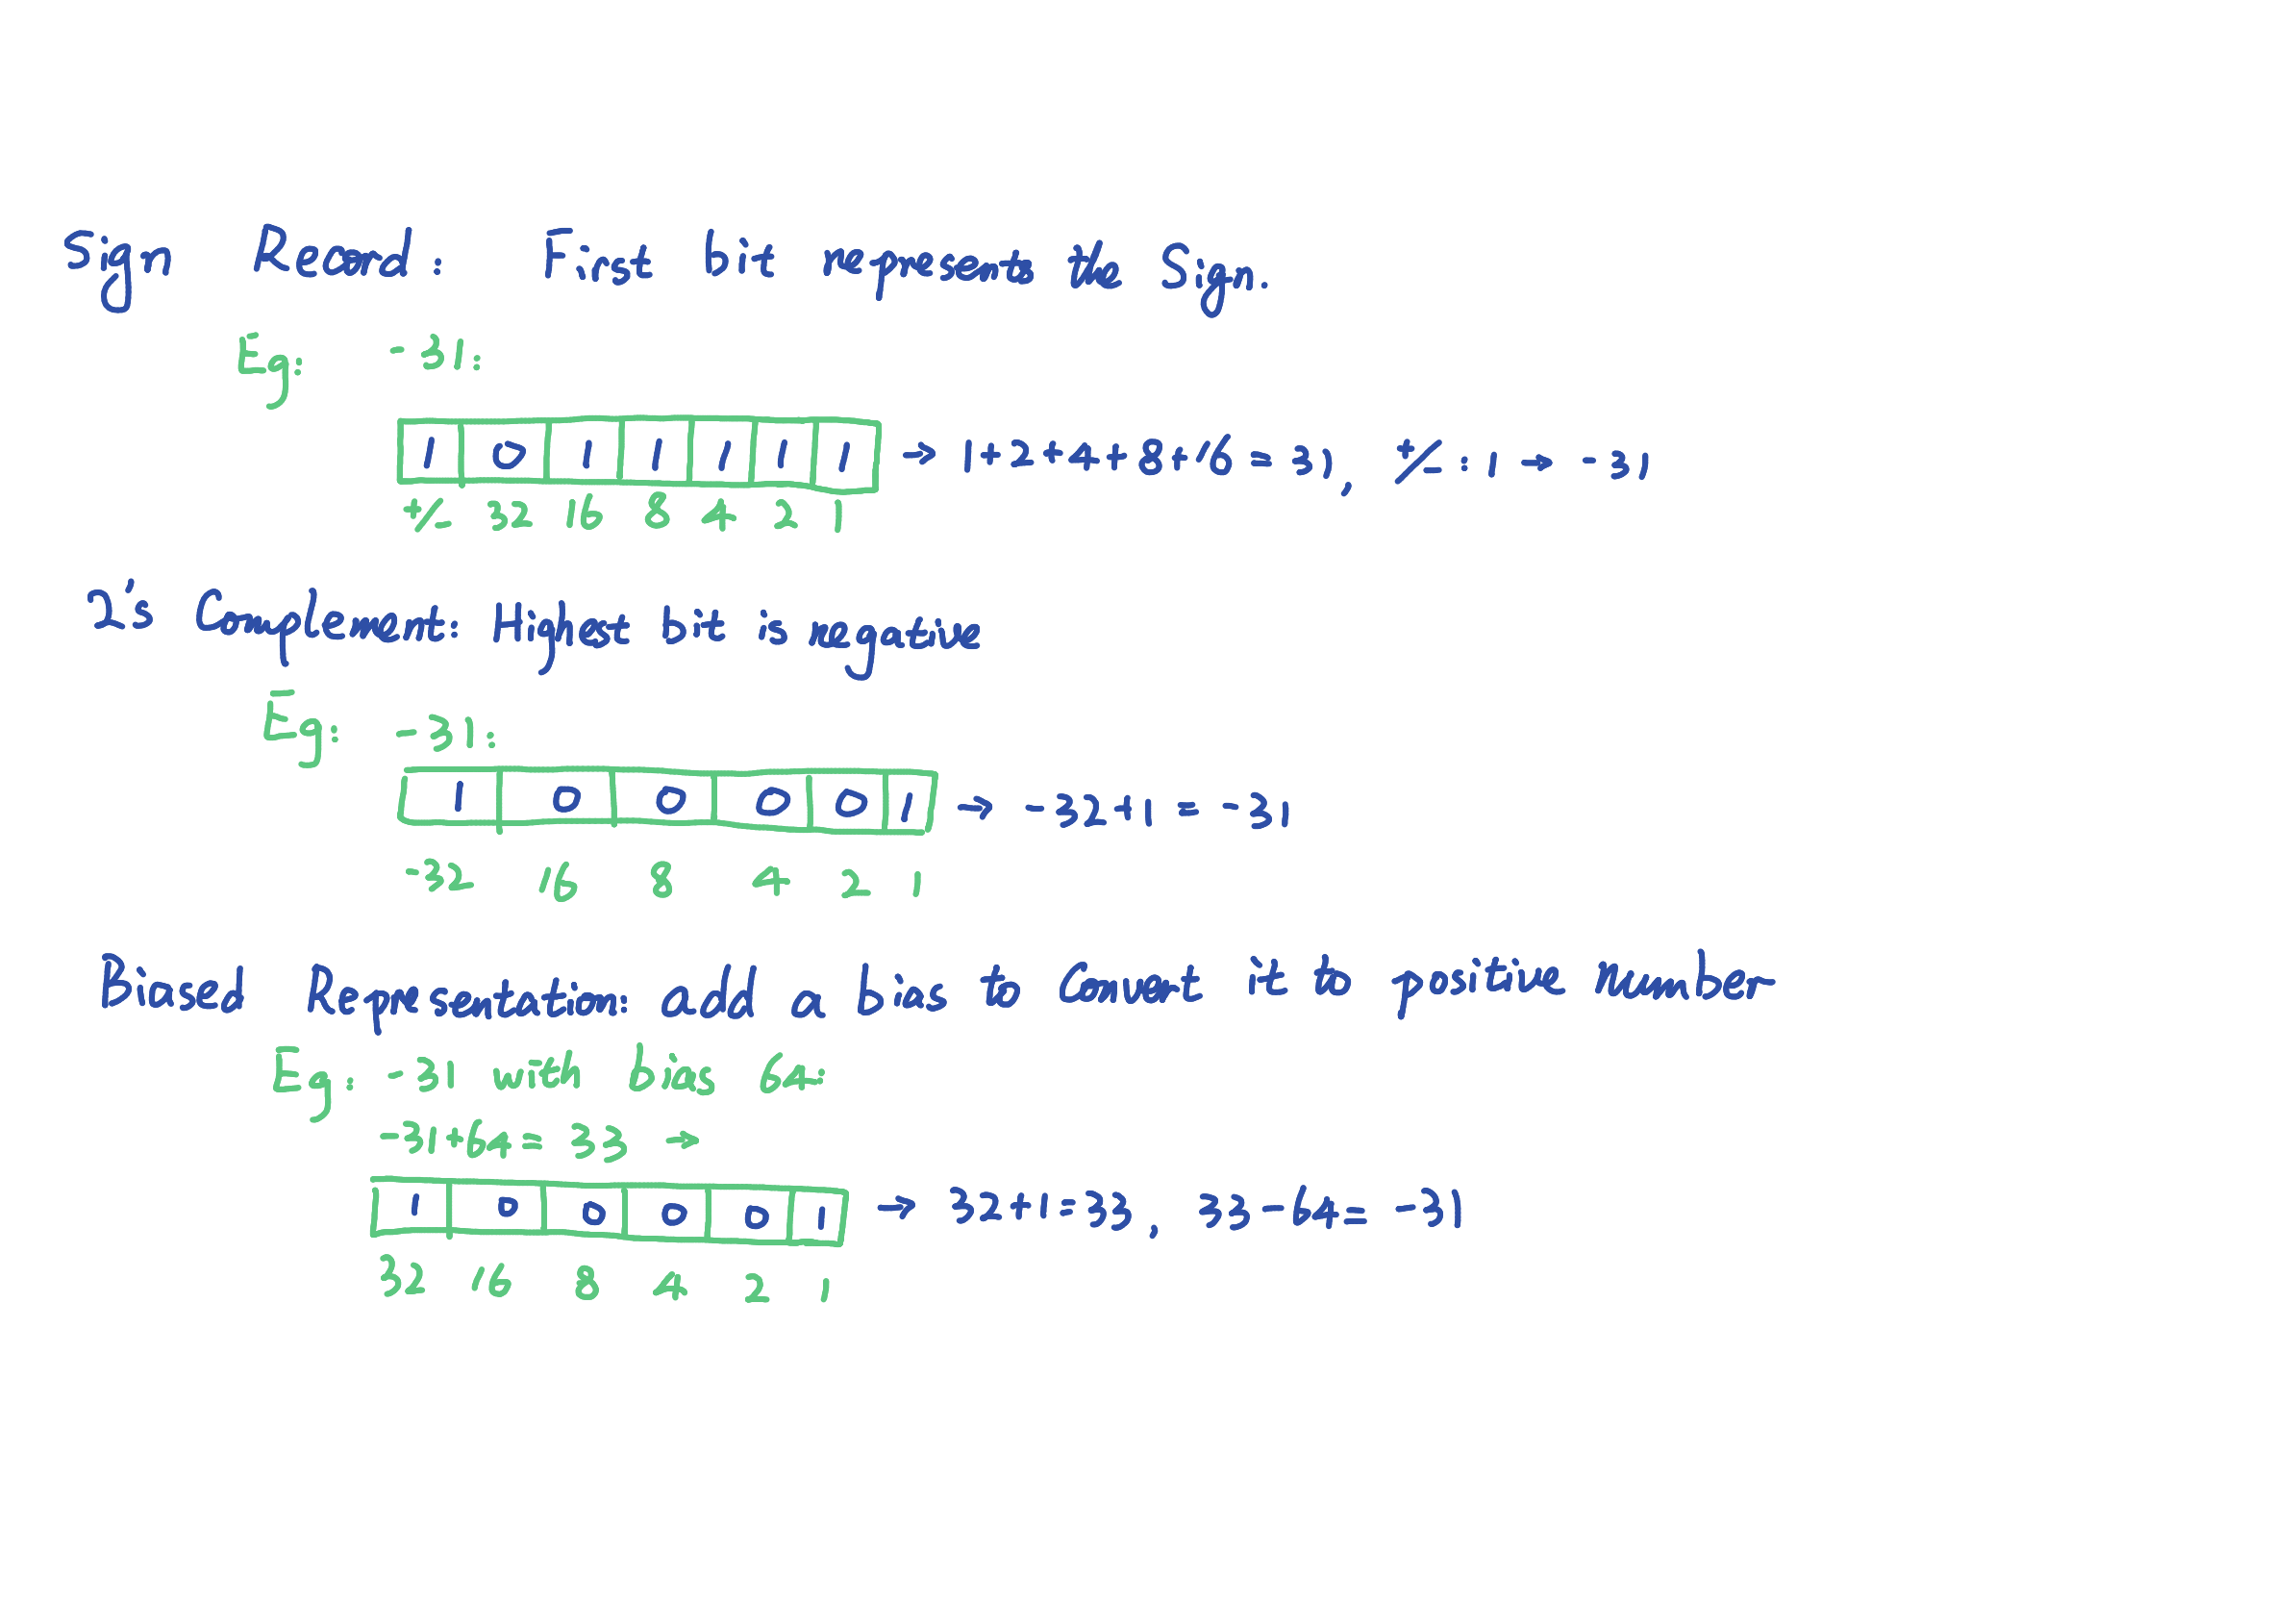 Sign Record: First bit represents the Sign.
Eg: -31:
1 0 1 1 1 1 1 → 1+2+4+8+16=31, +/-: 1 → -31
+/- 32 16 8 4 2 1
2's Complement: Highest bit is negative
Eg: -31:
1 0 0 0 0 1 → -32+1 = -31
-32 16 8 4 2 1
Biased Representation: add a bias to Convert it to positive number
Eg: -31 with bias 64:
-31+64= 33 →
1 0 0 0 0 1 → 32+1=33, 33-64= -31
32 16 8 4 2 1